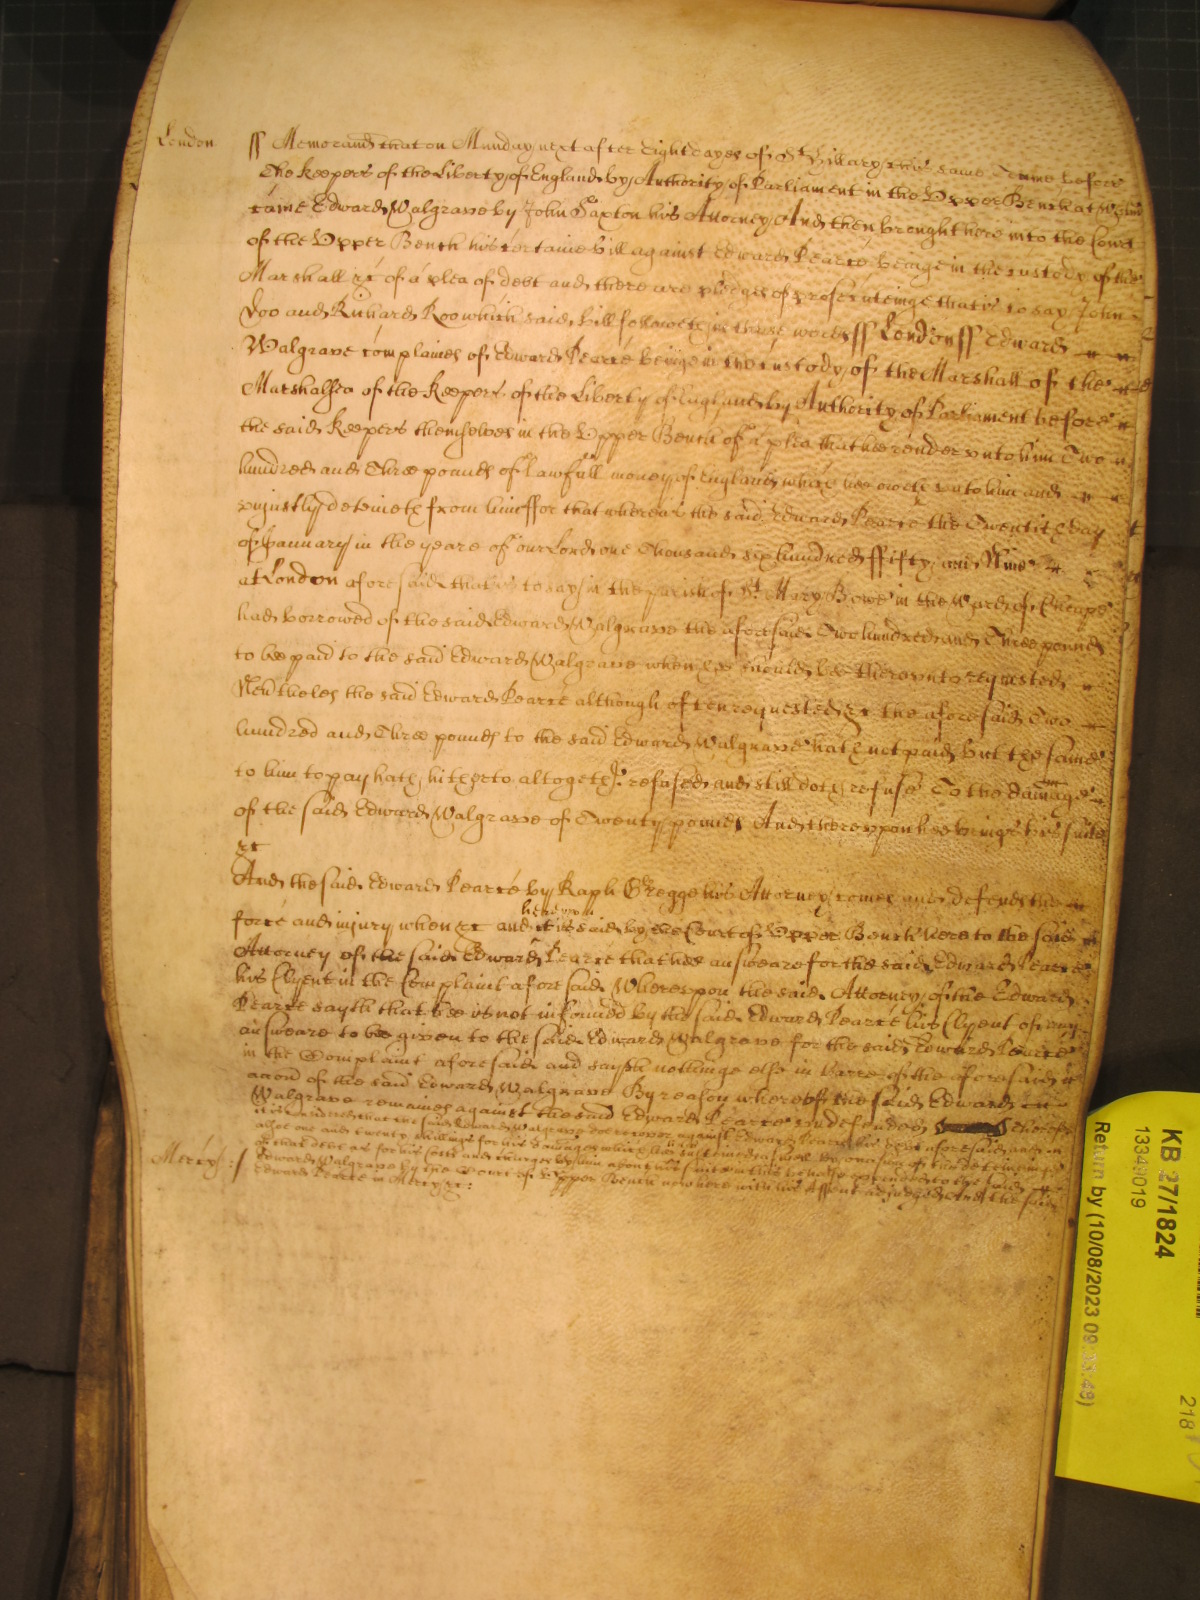 London ss Memorand that on Munday next after Eight dayes of St Hillary this same Terme before
The Keepers of the Liberty of England by Authority of Parliament in the Upper Bench at Westm
came Edward Walgrave by John Saxton his Attorney And then brought here into the Court
of the Upper Bench his certaine bill against Edward Pearce beinge in the custody of the
Marshall &c of a plea of debt and there are pledges of prosecuteinge that is to say John
Doo and Richard Roo which said bill followeth in these words ss London ss Edward
Walgrave complaines of Edward Pearce beinge in the custody of the Marshall of the
Marshalsea of the Keepers of the Liberty of England by Authority of Parliament before
the said Keepers themselves in the Upper Bench of a plea that hee render unto him Two
hundred and Three pounds of lawfull money of England which hee oweth unto him and
uniustly deteineth from him ffor that whereas the said Edward Pearce the Twentith day
of January in the yeare of our Lord one Thousand six hundred ffifty and Nine
at London aforesaid that is to say in the parish of St Mary Bowe in the Ward of Cheape
had borrowed of the said Edward Walgrave the aforesaid Two hundred and Three pounds
to bee paid to the said Edward Walgrave when hee should bee thereunto requested
Nevtheles the said Edward Pearce although often requested &c the aforesaid Two
hundred and Three pounds to the said Edward Walgrave hath not paid but the same
to him to pay hath hitherto altogether refused and still doth refuse To the damage
of the said Edward Walgrave of Twenty pounds And thereupon hee brings his suite
&c
And the said Edward Pearce by Raph Gregge his Attorney comes and defends the
force and injury when &c and hereupon it is said by the Court of Upper Bench here to the said
Attorney of the said Edward Pearce that hee answeare for the said Edward Pearce
his Clyent in the Complaint aforesaid Whereupon the said Attorney of the Edward
Pearce sayth that hee is not informed by the said Edward Pearce his Clyent of any
answeare to bee given to the said Edward Walgrave for the said Edward Pearce
in the Complaint aforesaid and sayth nothinge else in barre of the aforesaid
accon of the said Edward Walgrave By reason whereof the said Edward
Walgrave remaines against the said Edward Pearce undefended therefore
it is considered that the said Edward Walgrave doe recover against Edward Pearce his debt aforesaid and
alsoe one and twenty shillings for his damages which hee sustained as well by occasion of the deteininge
of that debt as for his Costs and charges by him about his suite in this behalfe to the said
Edward Walgrave by the Court of Upper Bench now here with his Assent adjudged And the said
Mercy :/ Edward Pearce in Mercy &c:
KB 27/1824
13349019
Return by (10/08/2023 09:35:49)
218